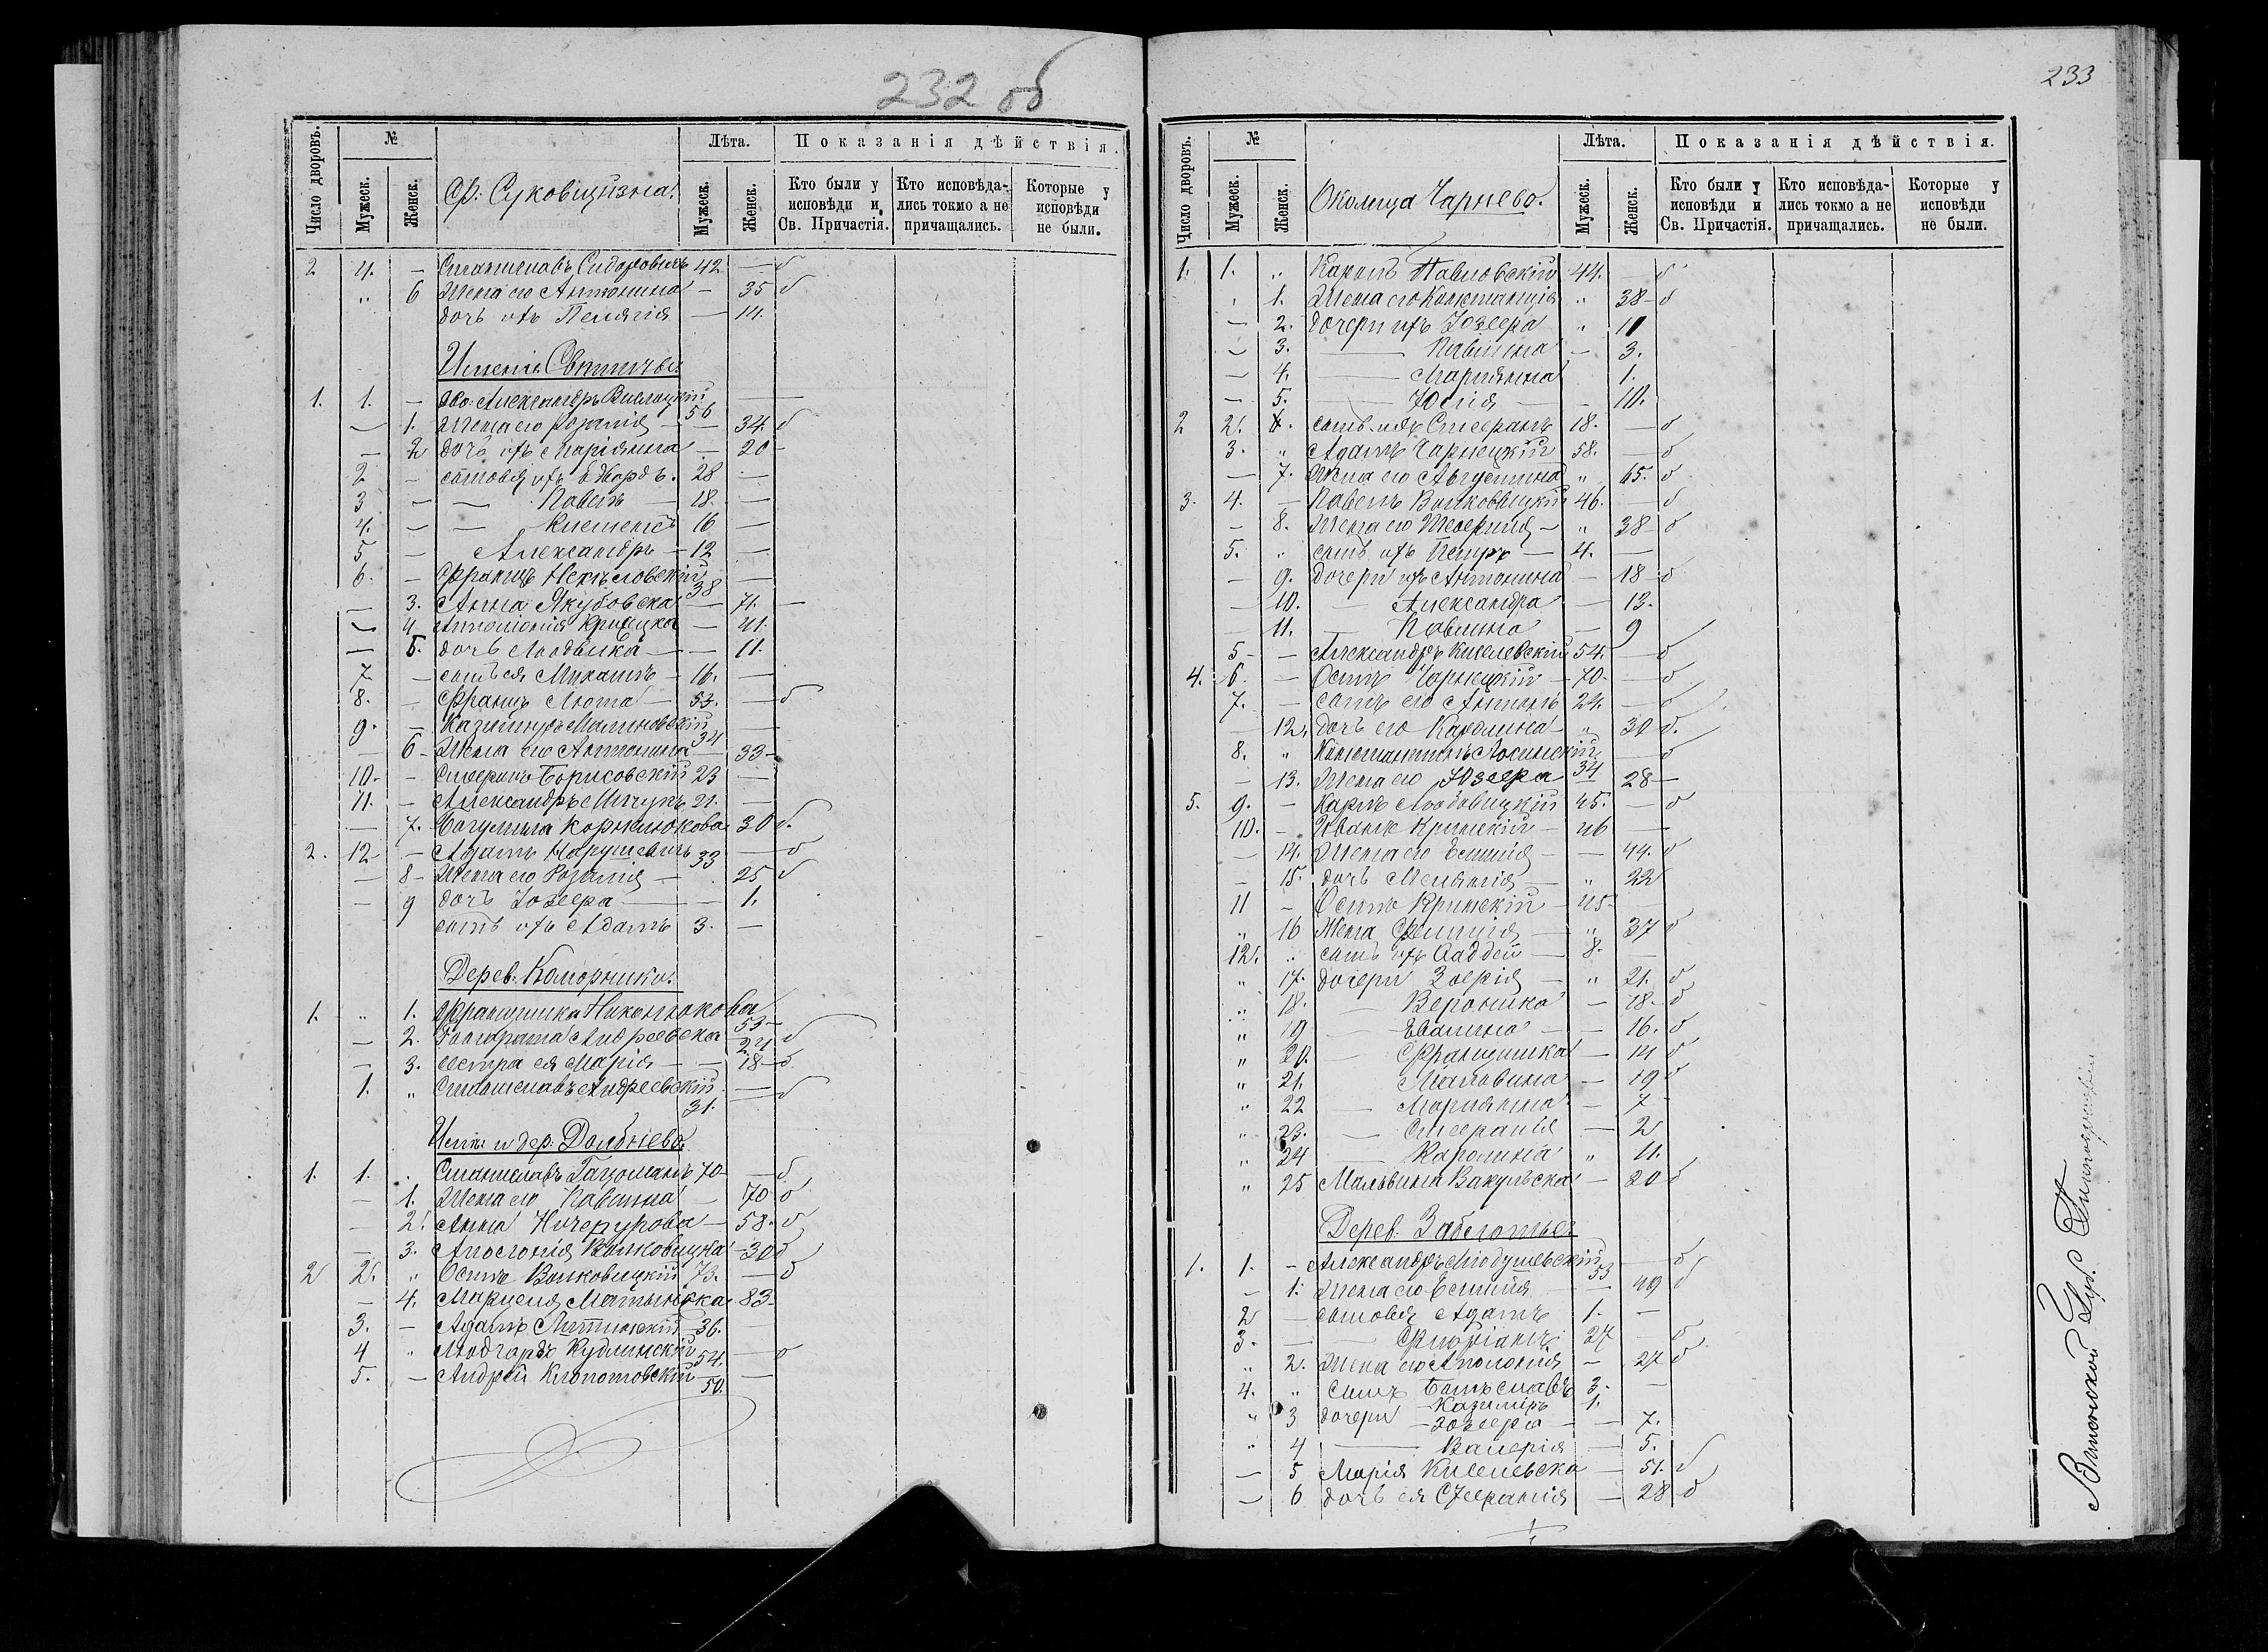 232 об
Число дворовъ. № Лѣта. Показанія дѣйствія.
Мужеск. Женск. Фр: Суковщизна. Мужеск. Женск. Кто были у исповѣди и Св. Причастія. Кто исповѣдались токмо а не причащались. Которые у исповѣди не были.
2 4. – Станиславъ Сидоровичъ 42 — б
„ 6 Жена его Антонина — 35 б
дочь ихъ Пелагія — 14.
Именіе Свытичы
1. 1. – дво: Александръ 56 —
— 1. Жена его Розалія — 34. б
— 2 дочь ихъ Маріянна — 20 -
2 – сыновья ихъ Эдвардъ. 28 —
3 — — Павелъ — 18. —
4. — — Клеменсъ 16 —
5 — Александръ — 12 —
6. – Францъ 38 —
— 3. Анна Якубовска — 71. —
— 4. Аполонія — 41.
— 5. дочь Людвика — 11.
7. – сынъ ея Михаилъ — 16. —
8. – Францъ Люта — 53. — б
9. – Казимиръ Малиновскій 34 —
— 6 - Жена его Антонина — 33 -
10. – Северинъ Борисовскій 23 —
11. – Александръ Мичукъ 21. —
— 7. Богумила Корнилюкова 30 б.
2. 12 – Адамъ Нарушевичъ 33 — б
— 8 - Жена его Розалія — 25 б
— 9 дочь Іозефа — 1.
сынъ ихъ Адамъ 3. —
Дерев: Коморники.
1. „ 1. Францишка 53 -
— 2. Андреевска 24 б
— 3. сестра ея Марія — 18 — б.
1. „ Станиславъ Андреевскій 31. — б
Имѣ: и дер: Долбнево.
1. 1. . Станиславъ Гацоманъ 70 — б
— 1. Жена его Павлина — 70 б
— 2. Анна Ничепурова — 58. б
— 3. Аполонія Волковицка — 30 б
2 2. „ Осипъ Волковицкій 73. — б
— 4. Марцеля Матыньска. 83 -
3. – Адамъ Литинскій 36. —
4 „ Людгардъ Кудлинскій 54. — б
5. – Андрей Клопотовскій 50. —
233
Число дворовъ. № Лѣта. Показанія дѣйствія.
Мужеск. Женск. Околица Чарнево. Мужеск. Женск. Кто были у исповѣди и Св. Причастія. Кто исповѣдались токмо а не причащались. Которые у исповѣди не были.
1. 1. „ Карлъ Павловскій 44. — б
„ 1. Жена его Констанція „ 38 - б
— 2. дочери ихъ Іозефа „ 11
— 3. — Павлина — 3.
— 4. — Маріянна 1.
— 5. Юлія — 10.
2 2. сынъ ихъ Стефанъ 18. — б
3. „ Адамъ Чарнецкій 58. — б
— 7. Жена его Августина „ 65. б
3. 4. – Павелъ Волковицкій 46. — б
— 8. Жена его „ 38 б
5. „ сынъ ихъ Петръ — 4. —
— 9. дочери ихъ Антонина — 18 - б
— 10. — Александра — 13.
— 11. — Павлина — 9
5 - – Александръ Киселевскій 54. — б
4. 6. – Осипъ Чарнецкій — 70. — б
7. – сынъ его Антонъ 24. — б
— 12. дочь его Каролина „ 30 б.
8. „ Константинъ Лосинскій 34 — б
— 13. Жена его Юзефа 28 —
5. 9. – Карлъ Людовицкій 45. — б
10. – Иванъ Кринскій — 46 —
— 14. Жена его Емилія — 44. б
— 15. дочь Меланія — „ 22
11 – Осипъ Кринскій — 45 -
„ 16 Жена Фелиція — „ 37 б
12. „ сынъ ихъ Фаддей — 8. —
„ 17. дочери Зофія — „ 21. б
„ 18. — Вероника — 18 - б
„ 19 — Эвалина — 16. б
„ 20. — Францишка — 14 б
„ 21. Мальвина — 19 б
„ 22 — Маріянна — 7 -
„ 23. — Стефанія — 2
„ 24 — Каролина „ 11.
„ 25 Мальвина Вакульска — 20 б
Дерев: Заболотье.
1. 1. – Александръ 53 — б
— 1. Жена его Емилія — 49 б
2 – сыновья Адамъ 1. —
3. — — Флоріанъ 27 — б
„ 2. Жена его Аполонія — 27 б
4. „ сынъ Болеславъ 3. —
Казиміръ 1.
„ 3 дочери — Іозефа — 7.
„ 4 — Валерія — 5.
— 5 Марія Киселевска — 51. б
— 6 дочь ея Стефанія — 28 б
Виленской Губ. Типографіи